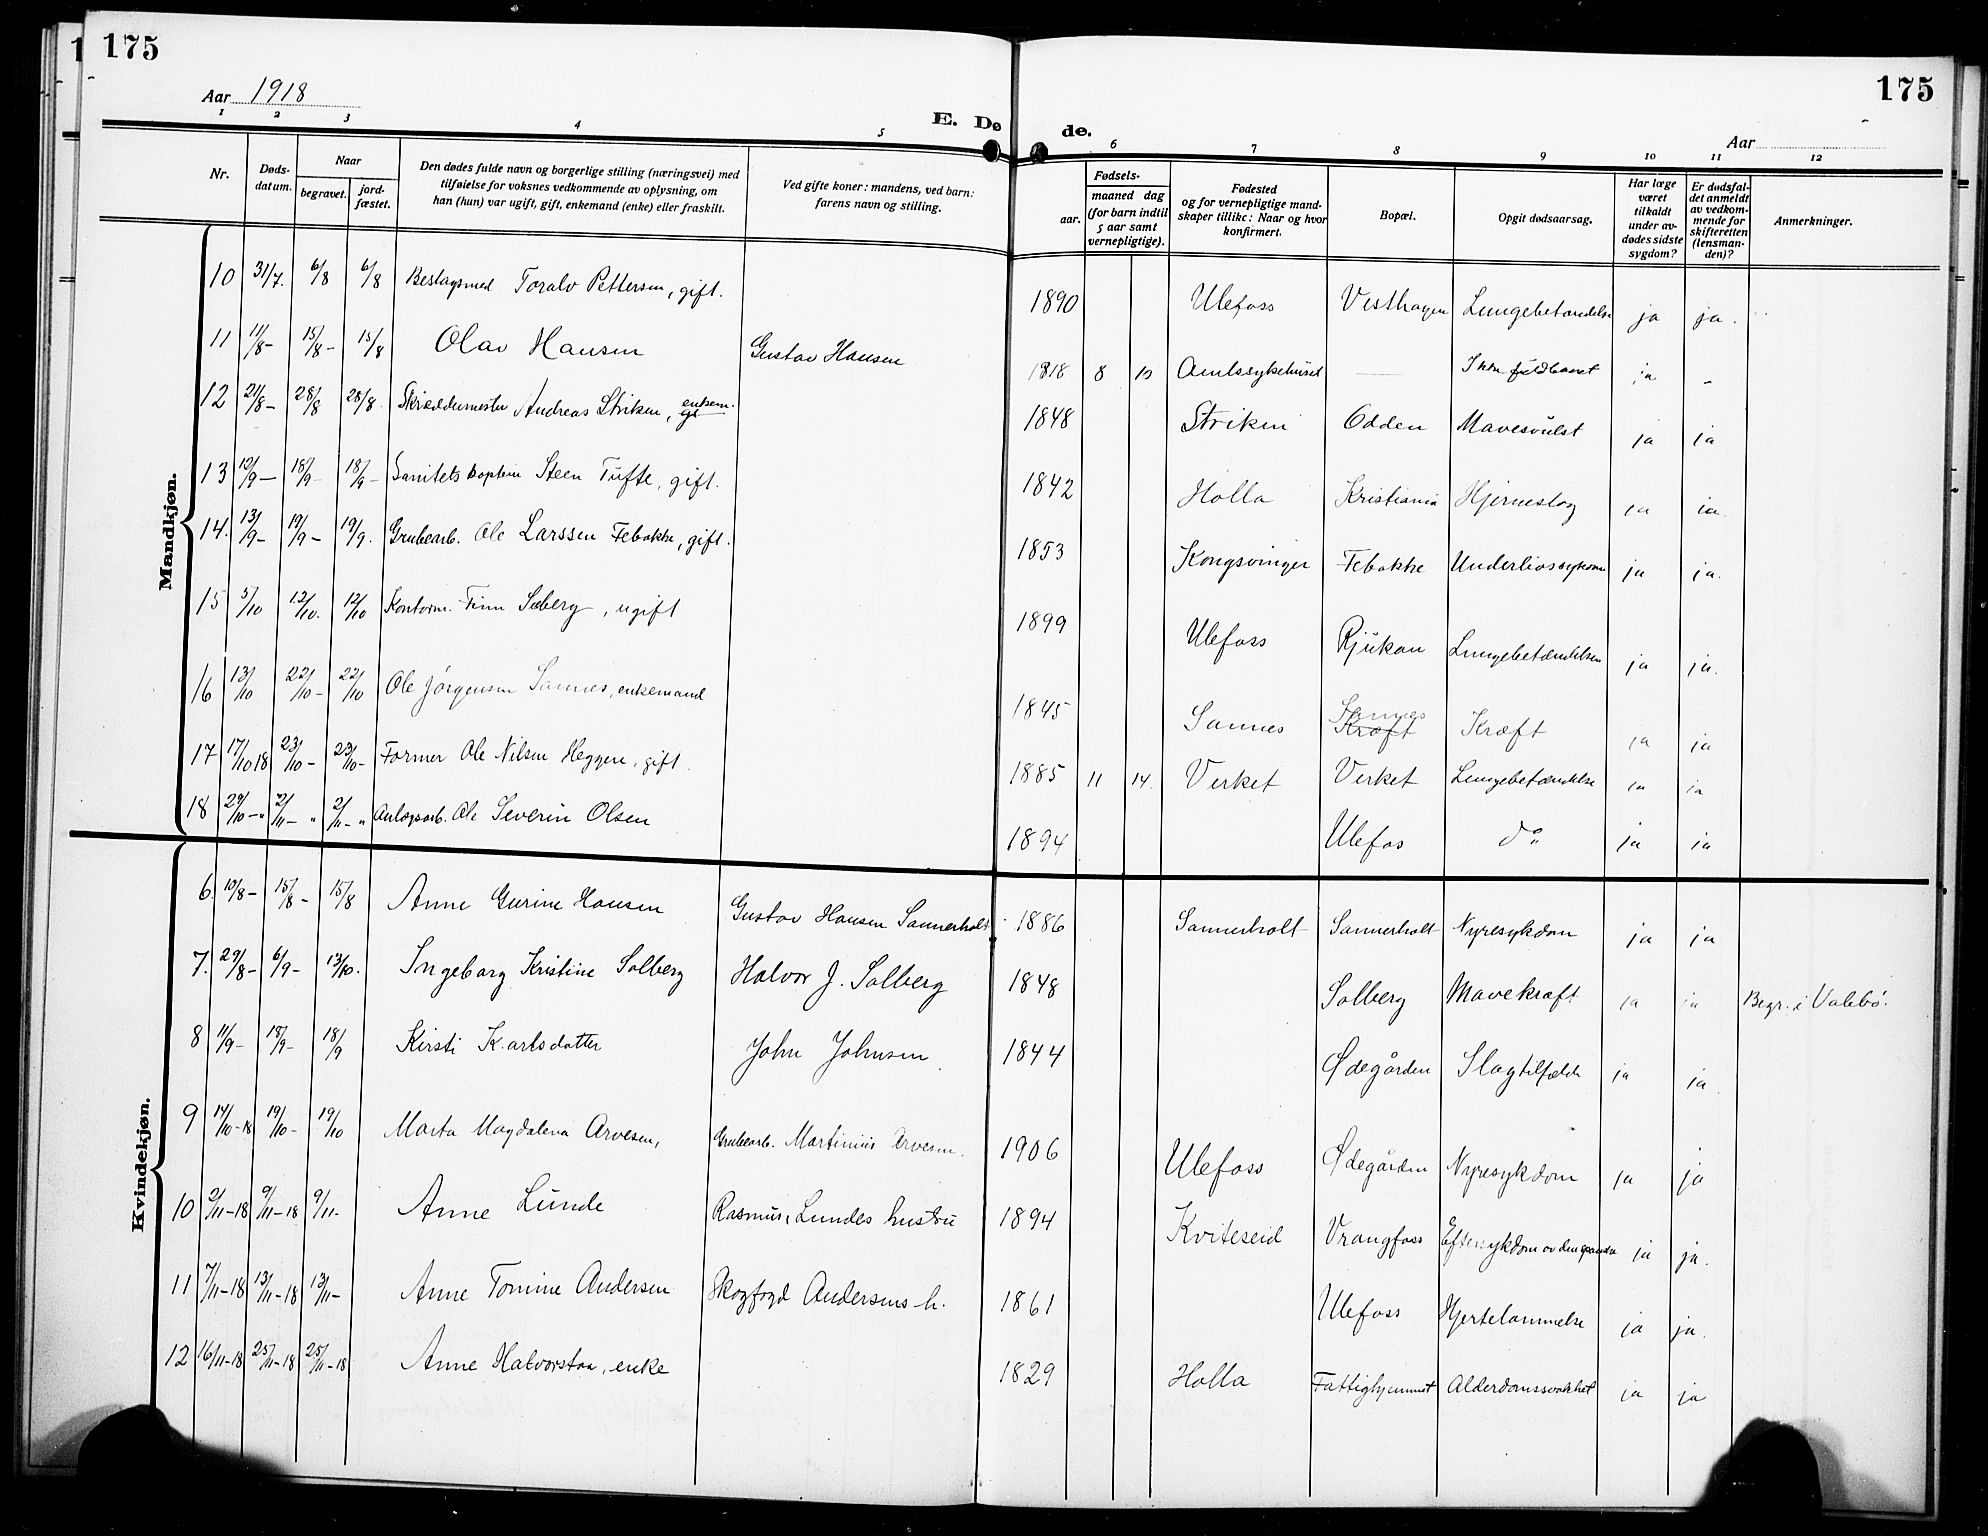 175
175
Aar 1918
E. Dø de.
Aar
1 2 3 4 5 6 7 8 9 10 11 12
Nr.
Døds-
datum.
Naar
begravet.
jord-
fæstet.
Den dødes fulde navn og borgerlige stilling (næringsvei) med
tilføielse for voksnes vedkommende av oplysning, om
han (hun) var ugift, gift, enkemand (enke) eller fraskilt.
Ved gifte koner: mandens, ved barn:
farens navn og stilling.
Fødsels-
aar.
maaned dag
(for barn indtil
5 aar samt
vernepligtige).
Fødested
og for vernepligtige mand-
skaper tillike: Naar og hvor
konfirmert.
Bopæl.
Opgit dødsaarsag.
Har læge
været
tilkaldt
under av-
dødes sidste
sygdom?
Er dødsfal-
det anmeldt
av vedkom-
mende for
skifteretten
(lensman-
den)?
Anmerkninger.
Mandkjøn.
10 31/7. 6/8 6/8 Beslagsmed Toralv Pettersen, gift. 1890 Ulefoss Vesthagen Lungebetændelse ja ja.
11 11/8- 15/8- 15/8 Olav Hansen Gustav Hansen 1818 8 10 Amtssykehuset — Ikke fuldbaaret ja -
12 21/8- 28/8 28/8. Skræddermester Andreas Striken, enkem. 1848 Striken Odden Mavesvulst ja ja
13 12/9- 18/9- 18/9- Sanitetskaptein Steen Tufte, gift. 1842 Holla Kristiania Hjerneslag ja ja.
14. 13/9- 19/9- 19/9. Grubearb. Ole Larssen Febakke, gift. 1853 Kongsvinger Febakke Underlivssykdom ja ja.
15 5/10 12/10. 12/10 Kontorm. Finn Søberg, ugift 1899 Ulefoss Rjukan Lungebetændelsen ja ja.
16 13/10 22/10- 22/10 Ole Jörgensen Sannes, enkemand 1845 Sannes Sannes Kræft Kræft ja ja
17 17/10 18 23/10- 23/10- Former Ole Nilsen Heggen, gift. 1885 11 14. Verket Verket Lungebetændelse ja ja
18 29/10-" 2/11-" 2/11-" Anlægsarb. Ole Severin Olsen 1894 Ulefos do ja ja
Kvindekjøn.
6. 10/8- 15/8- 15/8 Anne Gurine Hansen Gustav Hansen Sannerholt 1886 Sannerholt Sannerholt Nyresykdom ja ja
7. 29/8- 6/9- 13/10. Ingeborg Kristine Solberg Halvor J. Solberg 1848 Solberg Mavekræft ja ja Begr. i Valebö.
8 11/9- 18/9- 18/9 Kirsti K.arlsdatter John Johnsen 1844 Ødegården Slagtilfælde ja ja
9 14/10-18 19/10- 19/10 Marta Magdalena Arvesen, Grubearb. Martinius Arvesen. 1906 Ulefoss Ødegården Nyresykdom ja ja
10 2/11-18 9/11-18 9/11. Anne Lunde Rasmus Lundes hustru 1894 Kviteseid Vrangfoss Eftersykdom av den spanske ja ja.
11 7/11-18 13/11-18 13/11- Anne Tomine Andersen Skogfogd Andersens h. 1861 Ulefoss Hjertelammelse ja ja.
12 16/11-18 25/11-18 25/11-18 Anne Halvorstaa, enke 1829 Holla Fattighjemmet Alderdomssvakhet ja ja